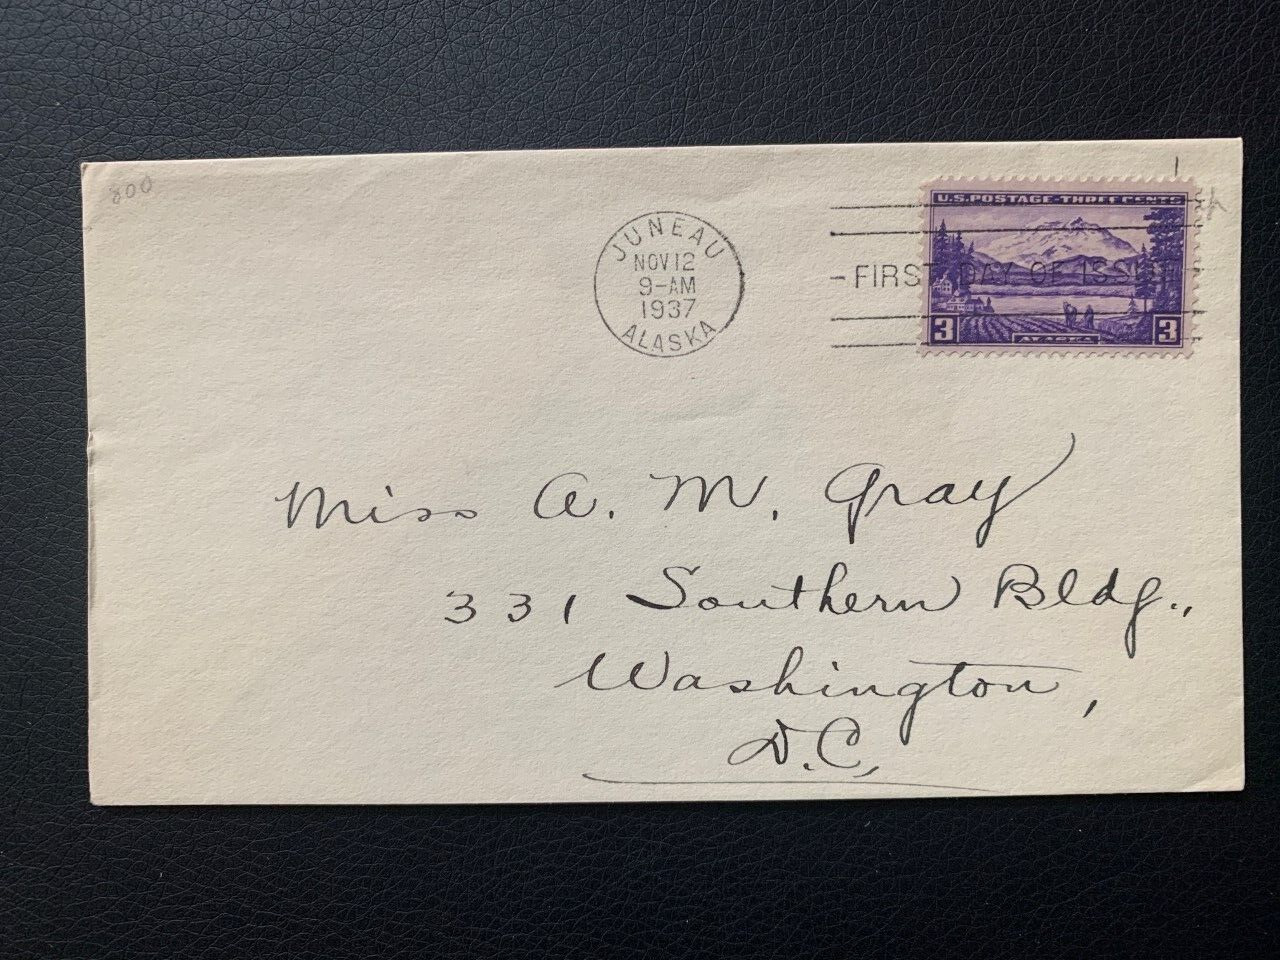 800
JUNEAU
NOV 12
9-AM
1937
ALASKA
U.S. POSTAGE - THREE CENTS
FIRST DAY OF ISSUE
3 ALASKA 3
Miss A. M. Gray
331 Southern Bldg.,
Washington,
D.C.